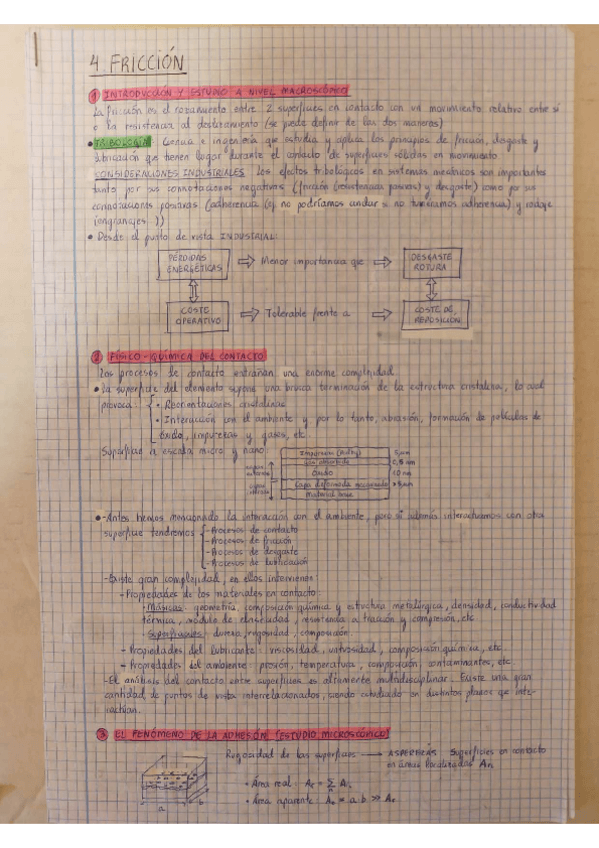 4. FRICCIÓN
① INTRODUCCIÓN Y ESTUDIO A NIVEL MACROSCÓPICO
La fricción es el rozamiento entre 2 superficies en contacto con un movimiento relativo entre sí
o la resistencia al deslizamiento (se puede definir de las dos maneras)
• TRIBOLOGÍA: Ciencia e ingeniería que estudia y aplica los principios de fricción, desgaste y
lubricación que tienen lugar durante el contacto de superficies sólidas en movimiento
CONSIDERACIONES INDUSTRIALES: Los efectos tribológicos en sistemas mecánicos son importantes
tanto por sus connotaciones negativas (fricción (resistencias pasivas) y desgaste) como por sus
connotaciones positivas (adherencia (ej no podríamos andar si no tuviéramos adherencia) y rodaje
(engranajes...))
• Desde el punto de vista INDUSTRIAL:
PÉRDIDAS ENERGÉTICAS ⇨ Menor importancia que ⇨ DESGASTE ROTURA
COSTE OPERATIVO ⇨ Tolerable frente a ⇨ COSTE DE REPOSICIÓN
② FÍSICO-QUÍMICA DEL CONTACTO
Los procesos de contacto entrañan una enorme complejidad
• La superficie del elemento supone una brusca terminación de la estructura cristalina, lo cual
provoca: • Reorientaciones cristalinas
• Interacción con el ambiente y por lo tanto, abrasión, formación de películas de
óxido, impurezas y gases, etc.
Superficie a escala micro y nano:
Impurezas 5 µm
Gas absorbido 0,5 nm
Óxido 10 nm
Capa deformada >5 µm
Material base
• -Antes hemos mencionado la interacción con el ambiente, pero si además interactuamos con otra
superficie tendremos -Procesos de contacto
-Procesos de fricción
-Procesos de desgaste
-Procesos de lubricación
-Existe gran complejidad, en ellos intervienen:
-Propiedades de los materiales en contacto:
-Másicas: geometría, composición química y estructura metalúrgica, densidad, conductividad
térmica, módulo de elasticidad, resistencia a tracción y compresión, etc
-Superficiales: dureza, rugosidad, composición.
- Propiedades del lubricante: viscosidad, untuosidad, composición química, etc.
- Propiedades del ambiente: presión, temperatura, composición, contaminantes, etc.
-El análisis del contacto entre superficies es altamente multidisciplinar. Existe una gran
cantidad de puntos de vista interrelacionados, siendo estudiado en distintos planos que inte-
ractúan.
③ EL FENÓMENO DE LA ADHESIÓN (ESTUDIO MICROSCÓPICO)
Rugosidad de las superficies → ASPEREZAS Superficies en contacto
en áreas localizadas Ari
• Área real: Ar = Σ Ari
• Área aparente: Aa = a·b ≫ Ar
a
b